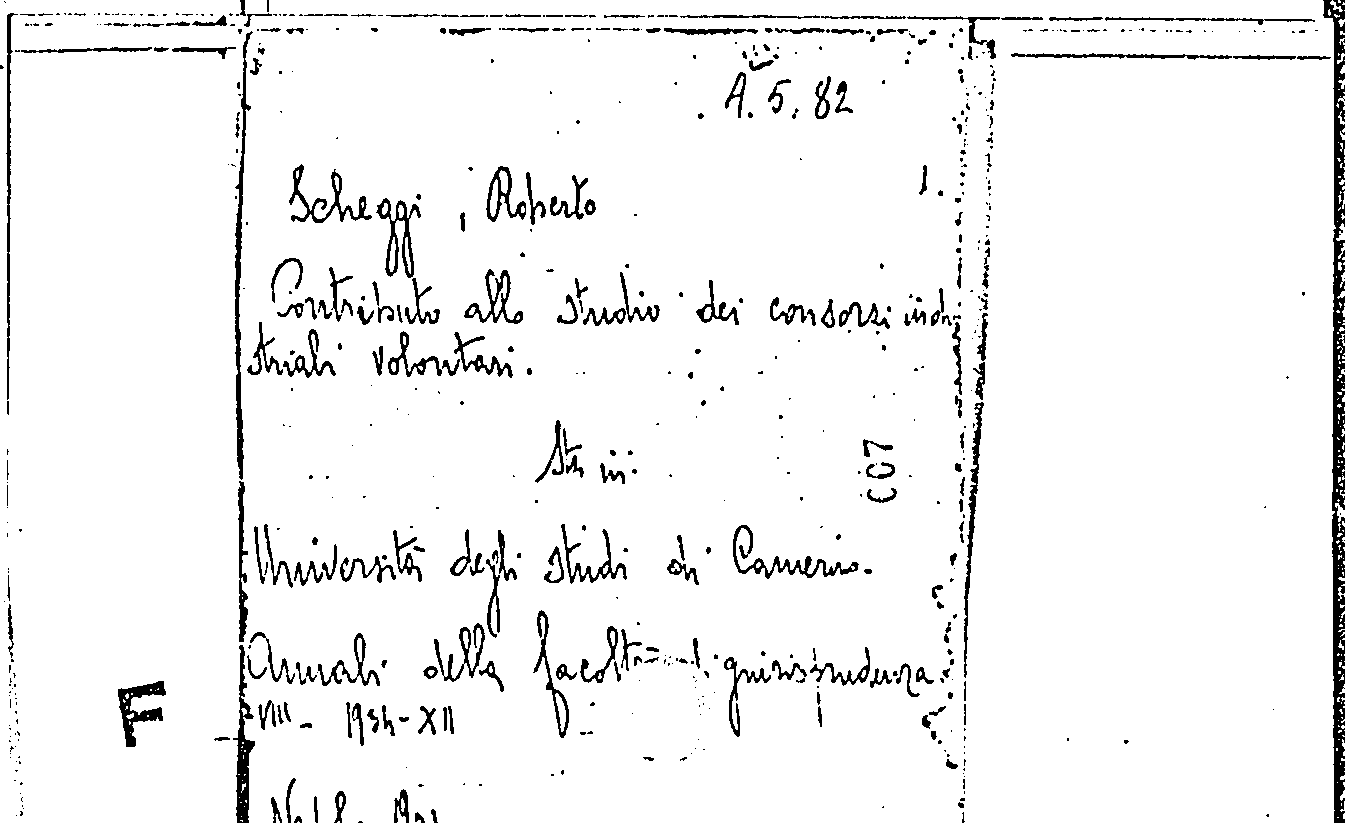 A. 5. 82
1.
Scheggi, Roberto
Contributo allo studio dei consorzi indu
striali volontari.
Sta in:
007
Università degli studi di Camerino.
Annali della facoltà di giurisprudenza.
VIII - 1934-XII
F